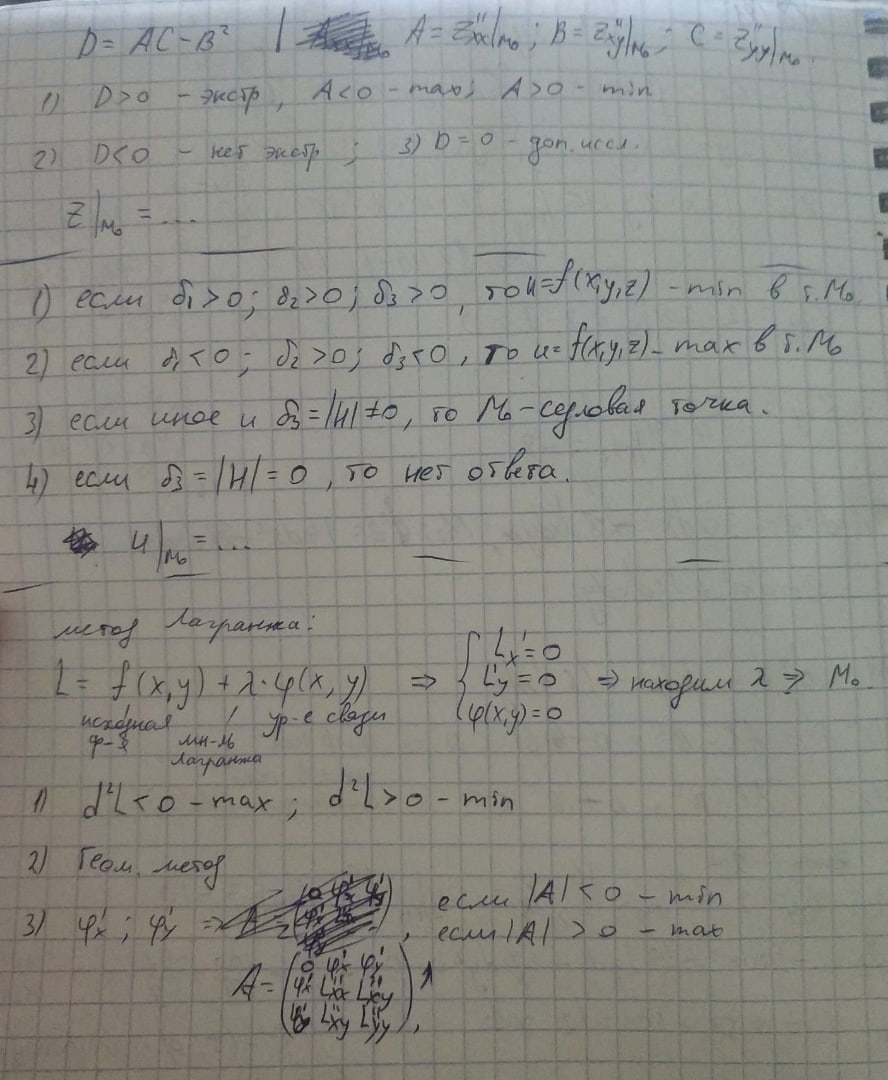 D = AC - B² | A = z''xx|M₀ ; B = z''xy|M₀ ; C = z''yy|M₀.
1) D>0 - экстр, A<0 - max; A>0 - min
2) D<0 - нет экстр ; 3) D = 0 - доп. иссл.
z|M₀ = ...
1) если δ₁>0; δ₂>0; δ₃>0, то u=f(x,y,z) - min в т. M₀
2) если δ₁<0; δ₂>0; δ₃<0, то u=f(x,y,z) - max в т. M₀
3) если иное и δ₃=|H|≠0, то M₀ - седловая точка.
4) если δ₃=|H|=0, то нет ответа.
u|M₀ = ...
метод Лагранжа:
L = f(x,y) + λ·φ(x,y) ⇒ { L'x = 0
L'y = 0
φ(x,y) = 0 ⇒ находим λ ⇒ M₀
исходная ур-е связи
ф-я мн-ль
Лагранжа
1) d²L<0 - max ; d²L>0 - min
2) Геом. метод
3) φ'x ; φ'y ⇒ , если |A|<0 - min
если |A|>0 - max
A = ( 0 φ'x φ'y
φ'x L''xx L''xy
φ'y L''xy L''yy ),